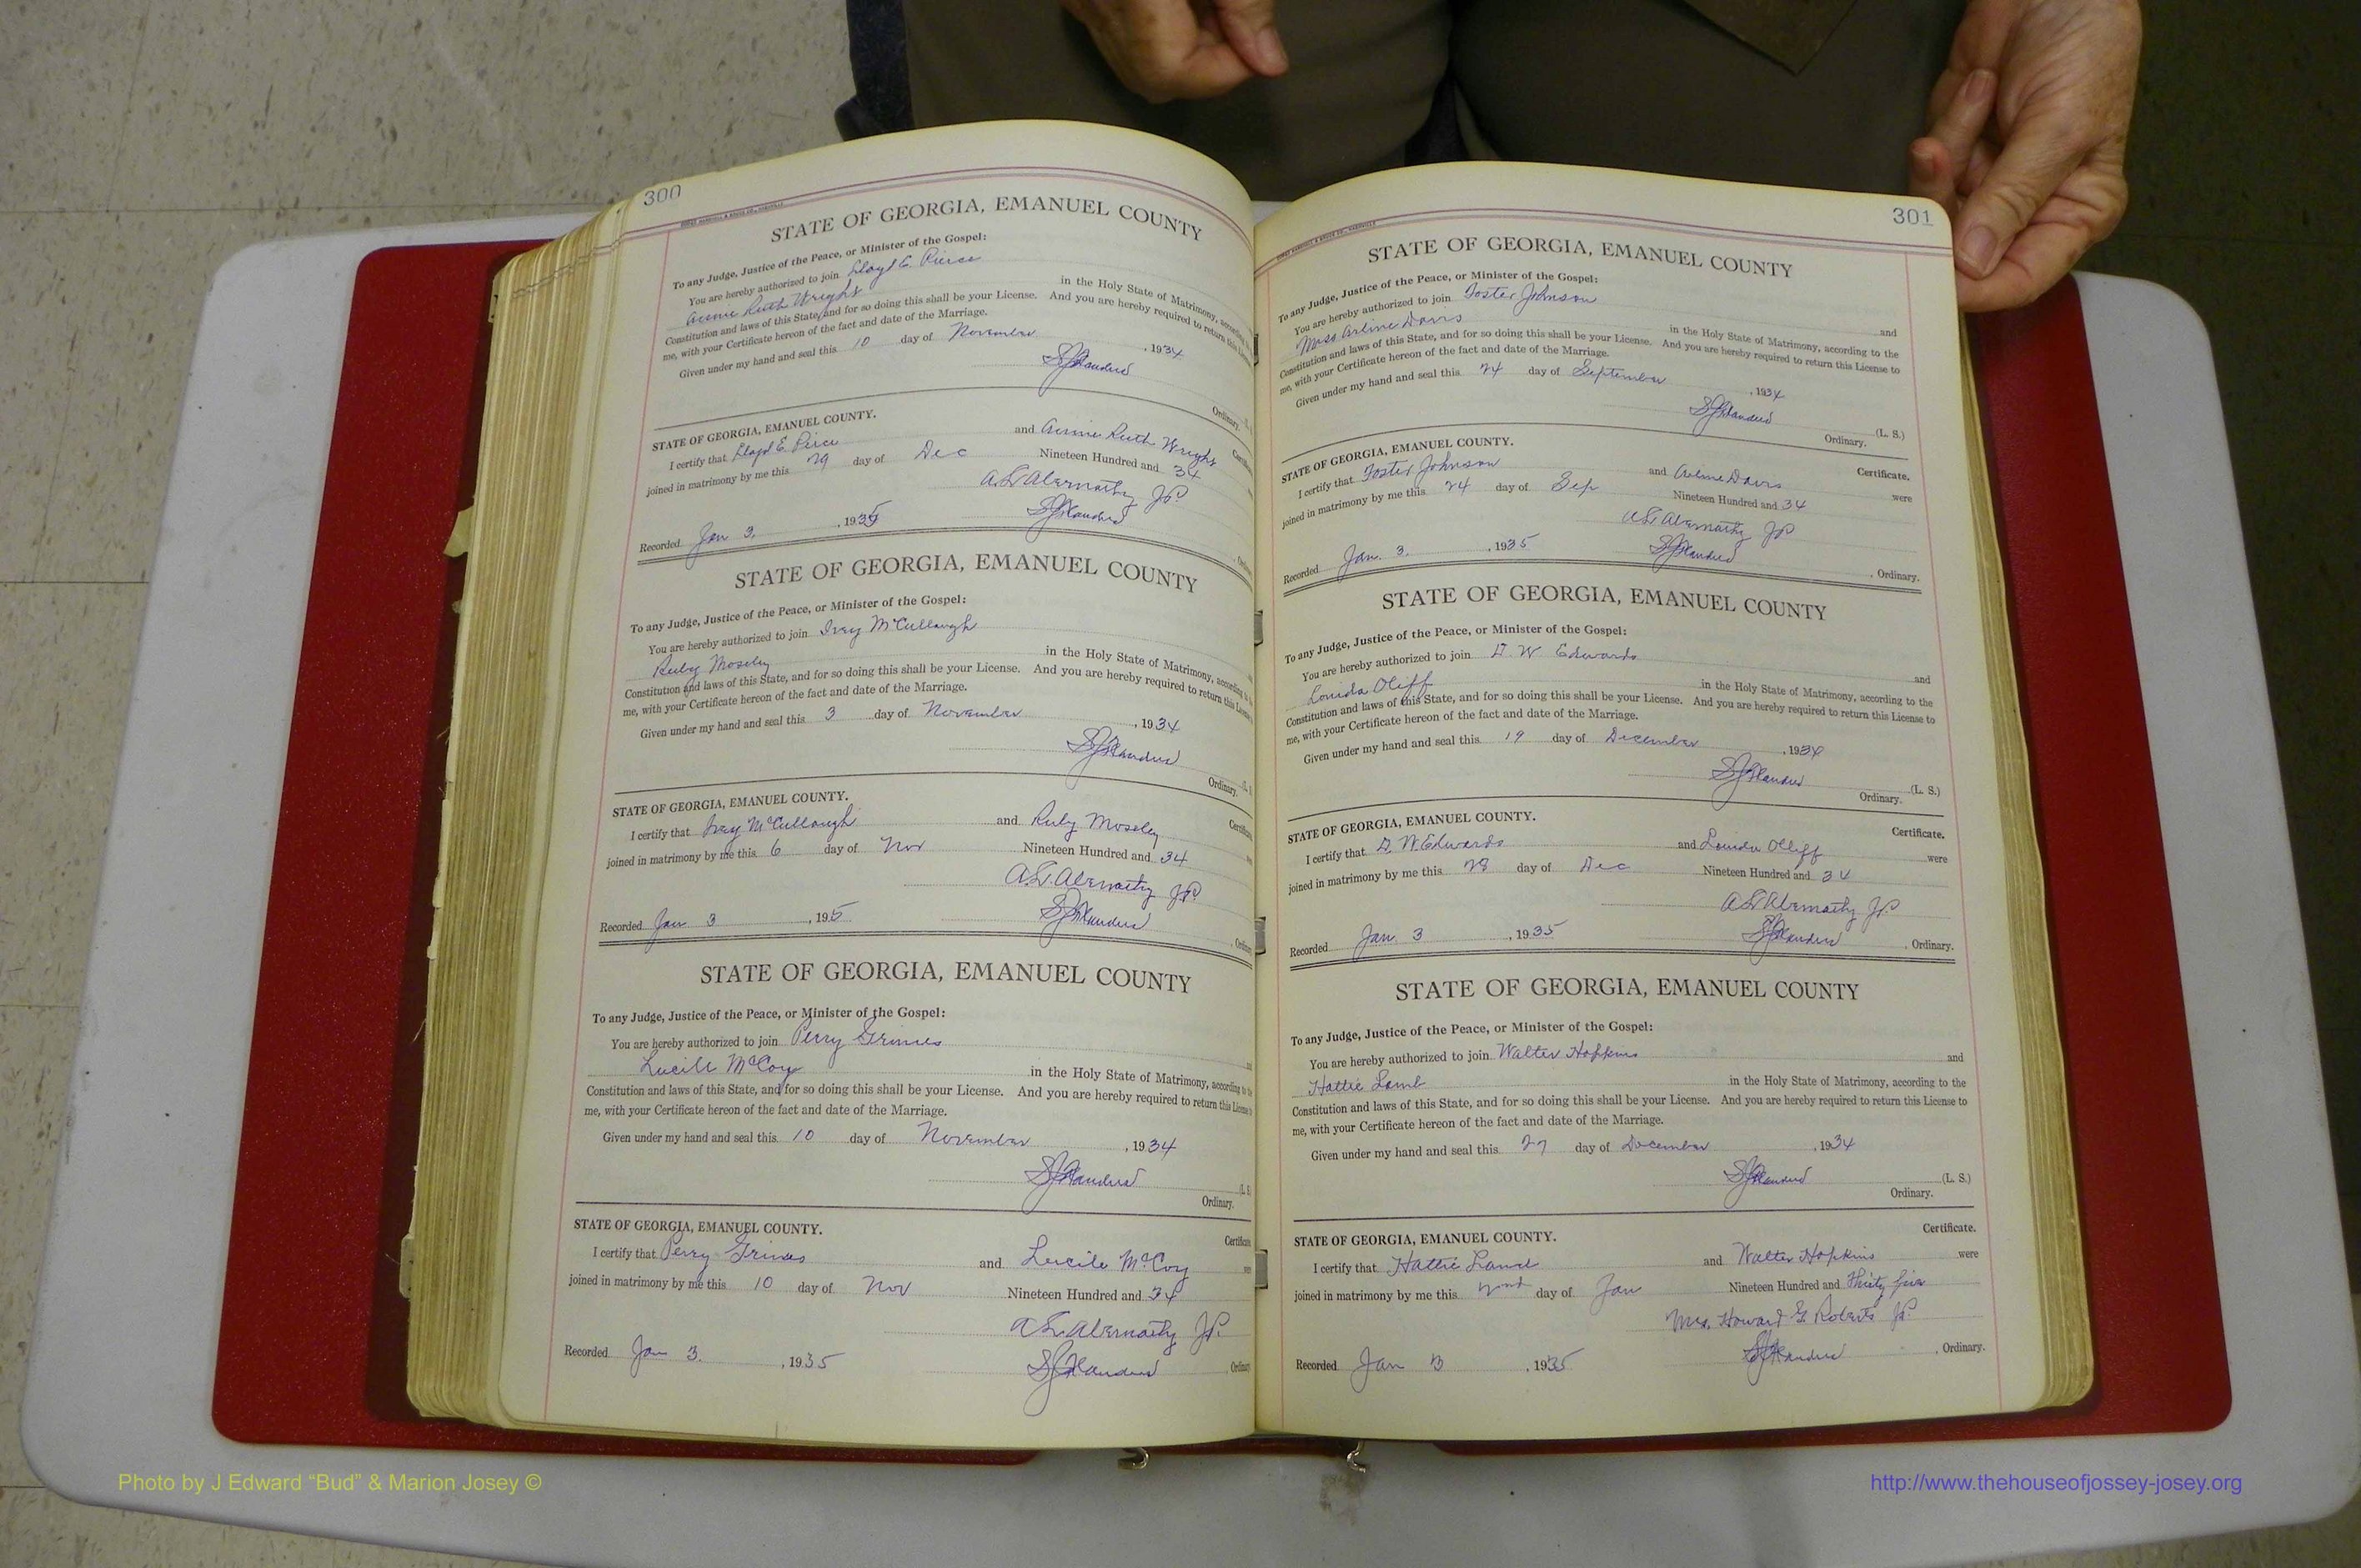 300
STATE OF GEORGIA, EMANUEL COUNTY
To any Judge, Justice of the Peace, or Minister of the Gospel:
You are hereby authorized to join Lloyd E. Pierce
Annie Ruth Wright in the Holy State of Matrimony, according
Constitution and laws of this State, and for so doing this shall be your License. And you are hereby required to return this
me, with your Certificate hereon of the fact and date of the Marriage.
Given under my hand and seal this 10 day of November, 1934
Ordinary.
STATE OF GEORGIA, EMANUEL COUNTY.
I certify that Lloyd E. Pierce and Annie Ruth Wright
joined in matrimony by me this 29 day of Dec Nineteen Hundred and 34
A.L. Abernathy J.P.
Recorded Jan 3, 1935
STATE OF GEORGIA, EMANUEL COUNTY
To any Judge, Justice of the Peace, or Minister of the Gospel:
You are hereby authorized to join Ivey McCullough
Ruby Moseley in the Holy State of Matrimony, according to
Constitution and laws of this State, and for so doing this shall be your License. And you are hereby required to return this License
me, with your Certificate hereon of the fact and date of the Marriage.
Given under my hand and seal this 3 day of November, 1934
Ordinary.
STATE OF GEORGIA, EMANUEL COUNTY.
I certify that Ivey McCullough and Ruby Moseley
joined in matrimony by me this 6 day of Nov Nineteen Hundred and 34
A.L. Abernathy J.P.
Recorded Jan 3, 195
STATE OF GEORGIA, EMANUEL COUNTY
To any Judge, Justice of the Peace, or Minister of the Gospel:
You are hereby authorized to join Perry Grimes
Lucille McCoy in the Holy State of Matrimony, according to the
Constitution and laws of this State, and for so doing this shall be your License. And you are hereby required to return this License
me, with your Certificate hereon of the fact and date of the Marriage.
Given under my hand and seal this 10 day of November, 1934
(L. S
Ordinary.
STATE OF GEORGIA, EMANUEL COUNTY.
Certificate
I certify that Perry Grimes and Lucile McCoy
joined in matrimony by me this 10 day of Nov Nineteen Hundred and 34
A.L. Abernathy J.P.
Recorded Jan 3., 1935 Ordinary
301
STATE OF GEORGIA, EMANUEL COUNTY
To any Judge, Justice of the Peace, or Minister of the Gospel:
You are hereby authorized to join Foster Johnson and
Miss Arline Davis in the Holy State of Matrimony, according to the
Constitution and laws of this State, and for so doing this shall be your License. And you are hereby required to return this License to
me, with your Certificate hereon of the fact and date of the Marriage.
Given under my hand and seal this 24 day of September, 1934
(L. S.)
Ordinary.
STATE OF GEORGIA, EMANUEL COUNTY.
Certificate.
I certify that Foster Johnson and Arline Davis were
joined in matrimony by me this 24 day of Sep Nineteen Hundred and 34
A.L. Abernathy J.P.
Recorded Jan. 3., 1935 Ordinary.
STATE OF GEORGIA, EMANUEL COUNTY
To any Judge, Justice of the Peace, or Minister of the Gospel:
You are hereby authorized to join D. W. Edwards and
Louida Oliff in the Holy State of Matrimony, according to the
Constitution and laws of this State, and for so doing this shall be your License. And you are hereby required to return this License to
me, with your Certificate hereon of the fact and date of the Marriage.
Given under my hand and seal this 19 day of December, 1934
(L. S.)
Ordinary.
STATE OF GEORGIA, EMANUEL COUNTY.
Certificate.
I certify that D. W. Edwards and Louida Olliff were
joined in matrimony by me this day of Dec Nineteen Hundred and 34
A.L. Abernathy J.P.
Recorded Jan. 3, 1935 Ordinary.
STATE OF GEORGIA, EMANUEL COUNTY
To any Judge, Justice of the Peace, or Minister of the Gospel:
You are hereby authorized to join Walter Hopkins and
Hattie Lamb in the Holy State of Matrimony, according to the
Constitution and laws of this State, and for so doing this shall be your License. And you are hereby required to return this License to
me, with your Certificate hereon of the fact and date of the Marriage.
Given under my hand and seal this 27 day of December, 1934
(L. S.)
Ordinary.
STATE OF GEORGIA, EMANUEL COUNTY.
Certificate.
I certify that Hattie Lamb and Walter Hopkins were
joined in matrimony by me this 2nd day of Jan Nineteen Hundred and Thirty five
Mrs. Howard G. Roberts J.P.
Recorded Jan 3, 1935 Ordinary.
Photo by J Edward “Bud” & Marion Josey ©
http://www.thehouseofjossey-josey.org